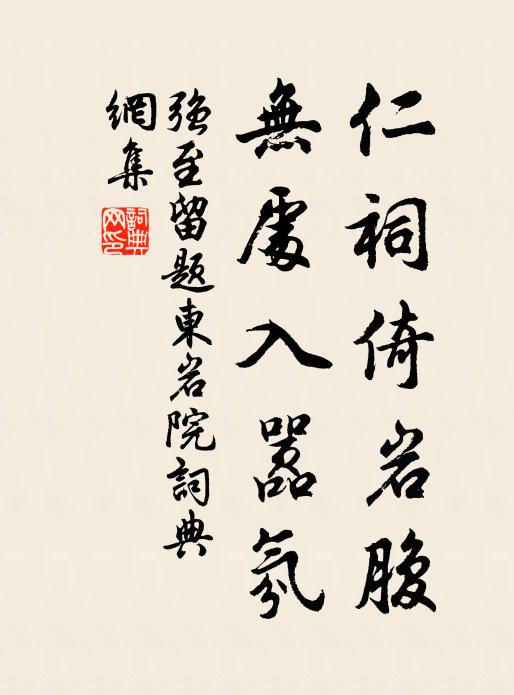 仁祠倚岩腹
無處入嚣氛
强至留题東岩院詞典
網集
詞典
网印